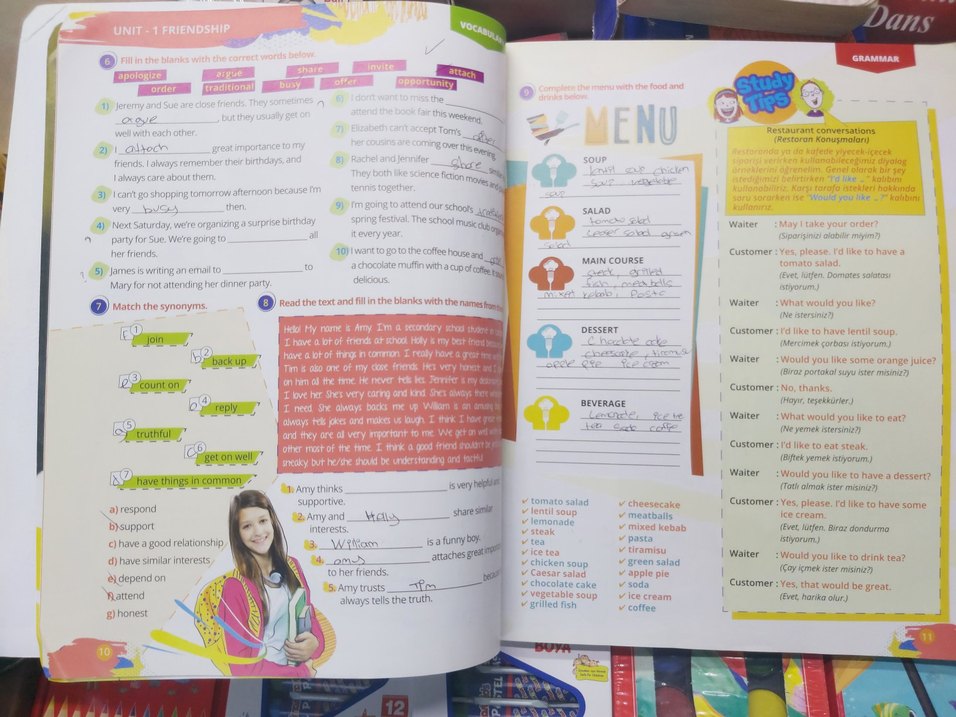 UNIT - 1 FRIENDSHIP
VOCABULARY
6 Fill in the blanks with the correct words below.
apologize argue share invite attach
order traditional busy offer opportunity
1) Jeremy and Sue are close friends. They sometimes
argue, but they usually get on
well with each other.
2) I attach great importance to my
friends. I always remember their birthdays, and
I always care about them.
3) I can't go shopping tomorrow afternoon because I'm
very busy then.
4) Next Saturday, we're organizing a surprise birthday
party for Sue. We're going to all
her friends.
5) James is writing an email to to
Mary for not attending her dinner party.
6) I don't want to miss the
attend the book fair this weekend.
7) Elizabeth can't accept Tom's offer
her cousins are coming over this evening.
8) Rachel and Jennifer share
They both like science fiction movies and
tennis together.
9) I'm going to attend our school's
spring festival. The school music club
it every year.
10) I want to go to the coffee house and
a chocolate muffin with a cup of coffee. It
delicious.
7 Match the synonyms.
f 1 join
b 2 back up
e 3 count on
4 reply
5 truthful
6 get on well
7 have things in common
a) respond
b) support
c) have a good relationship
d) have similar interests
e) depend on
f) attend
g) honest
8 Read the text and fill in the blanks with the names from
Hello! My name is Amy. I'm a secondary school student in
I have a lot of friends at school. Holly is my best friend
have a lot of things in common. I really have a great time
Tim is also one of my close friends. He's very honest and I
on him all the time. He never tells lies. Jennifer is my
I love her. She's very caring and kind. She's always there
I need. She always backs me up. William is an amusing
always tells jokes and makes us laugh. I think I have great
and they are all very important to me. We get on well
other most of the time. I think a good friend shouldn't be
sneaky, but he/she should be understanding and tactful.
1. Amy thinks is very helpful and
supportive.
2. Amy and Holly share similar
interests.
3. William is a funny boy.
4. amy attaches great importance
to her friends.
5. Amy trusts Tim because
always tells the truth.
10
GRAMMAR
9 Complete the menu with the food and
drinks below.
MENU
SOUP
lentil soup chicken
soup vegetable
soup
SALAD
tomato salad
ceaser salad green
salad
MAIN COURSE
steak, grilled
fish, meatballs
mixed kebab, Pasta
DESSERT
Chocolate cake
cheesecake, tiramisu
apple pie ice cream
BEVERAGE
Lemonade, ice tea
tea soda coffee
tomato salad
lentil soup
lemonade
steak
tea
ice tea
chicken soup
Caesar salad
chocolate cake
vegetable soup
grilled fish
cheesecake
meatballs
mixed kebab
pasta
tiramisu
green salad
apple pie
soda
ice cream
coffee
Study Tips
Restaurant conversations
(Restoran Konuşmaları)
Restoranda ya da kafede yiyecek-içecek
siparişi verirken kullanabileceğimiz diyalog
örneklerini öğrenelim. Genel olarak bir şey
istediğimizi belirtirken "I'd like .." kalıbını
kullanabiliriz. Karşı tarafa istekleri hakkında
soru sorarken ise "Would you like ..?" kalıbını
kullanırız.
Waiter : May I take your order?
(Siparişinizi alabilir miyim?)
Customer : Yes, please. I'd like to have a
tomato salad.
(Evet, lütfen. Domates salatası
istiyorum.)
Waiter : What would you like?
(Ne istersiniz?)
Customer : I'd like to have lentil soup.
(Mercimek çorbası istiyorum.)
Waiter : Would you like some orange juice?
(Biraz portakal suyu ister misiniz?)
Customer : No, thanks.
(Hayır, teşekkürler.)
Waiter : What would you like to eat?
(Ne yemek istersiniz?)
Customer : I'd like to eat steak.
(Biftek yemek istiyorum.)
Waiter : Would you like to have a dessert?
(Tatlı almak ister misiniz?)
Customer : Yes, please. I'd like to have some
ice cream.
(Evet, lütfen. Biraz dondurma
istiyorum.)
Waiter : Would you like to drink tea?
(Çay içmek ister misiniz?)
Customer : Yes, that would be great.
(Evet, harika olur.)
11
Dans
BOYA
12